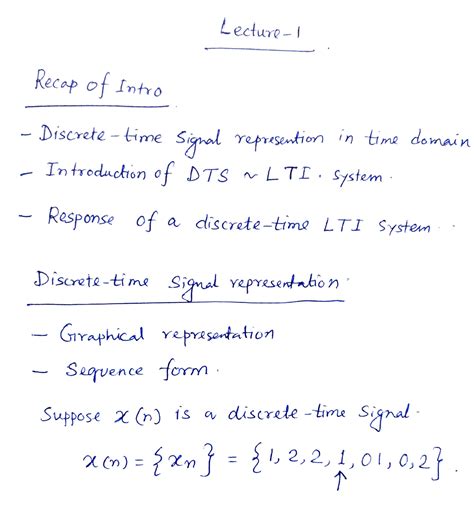 Lecture-1
Recap of Intro
- Discrete-time Signal represention in time domain
- Introduction of DTS ~ LTI. System.
- Response of a discrete-time LTI System.
Discrete-time Signal representation.
- Graphical representation
- Sequence form.
Suppose x(n) is a discrete-time Signal.
x(n) = {xn} = {1, 2, 2, 1, 01, 0, 2}.
↑